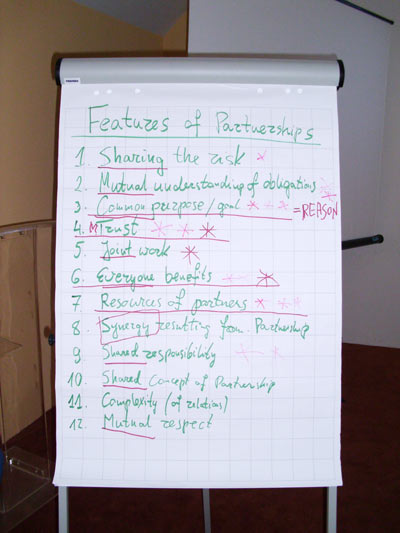 Features of Partnerships
1. Sharing the risk *
2. Mutual understanding of obligations *
3. Common purpose/goal * * * = REASON
4. MTrust * * *
5. Joint work *
6. Everyone benefits * * *
7. Resources of partners * * *
8. Synergy resulting from Partnership
9. Shared responsibility * *
10. Shared concept of Partnership
11. Complexity (of relations)
12. Mutual respect